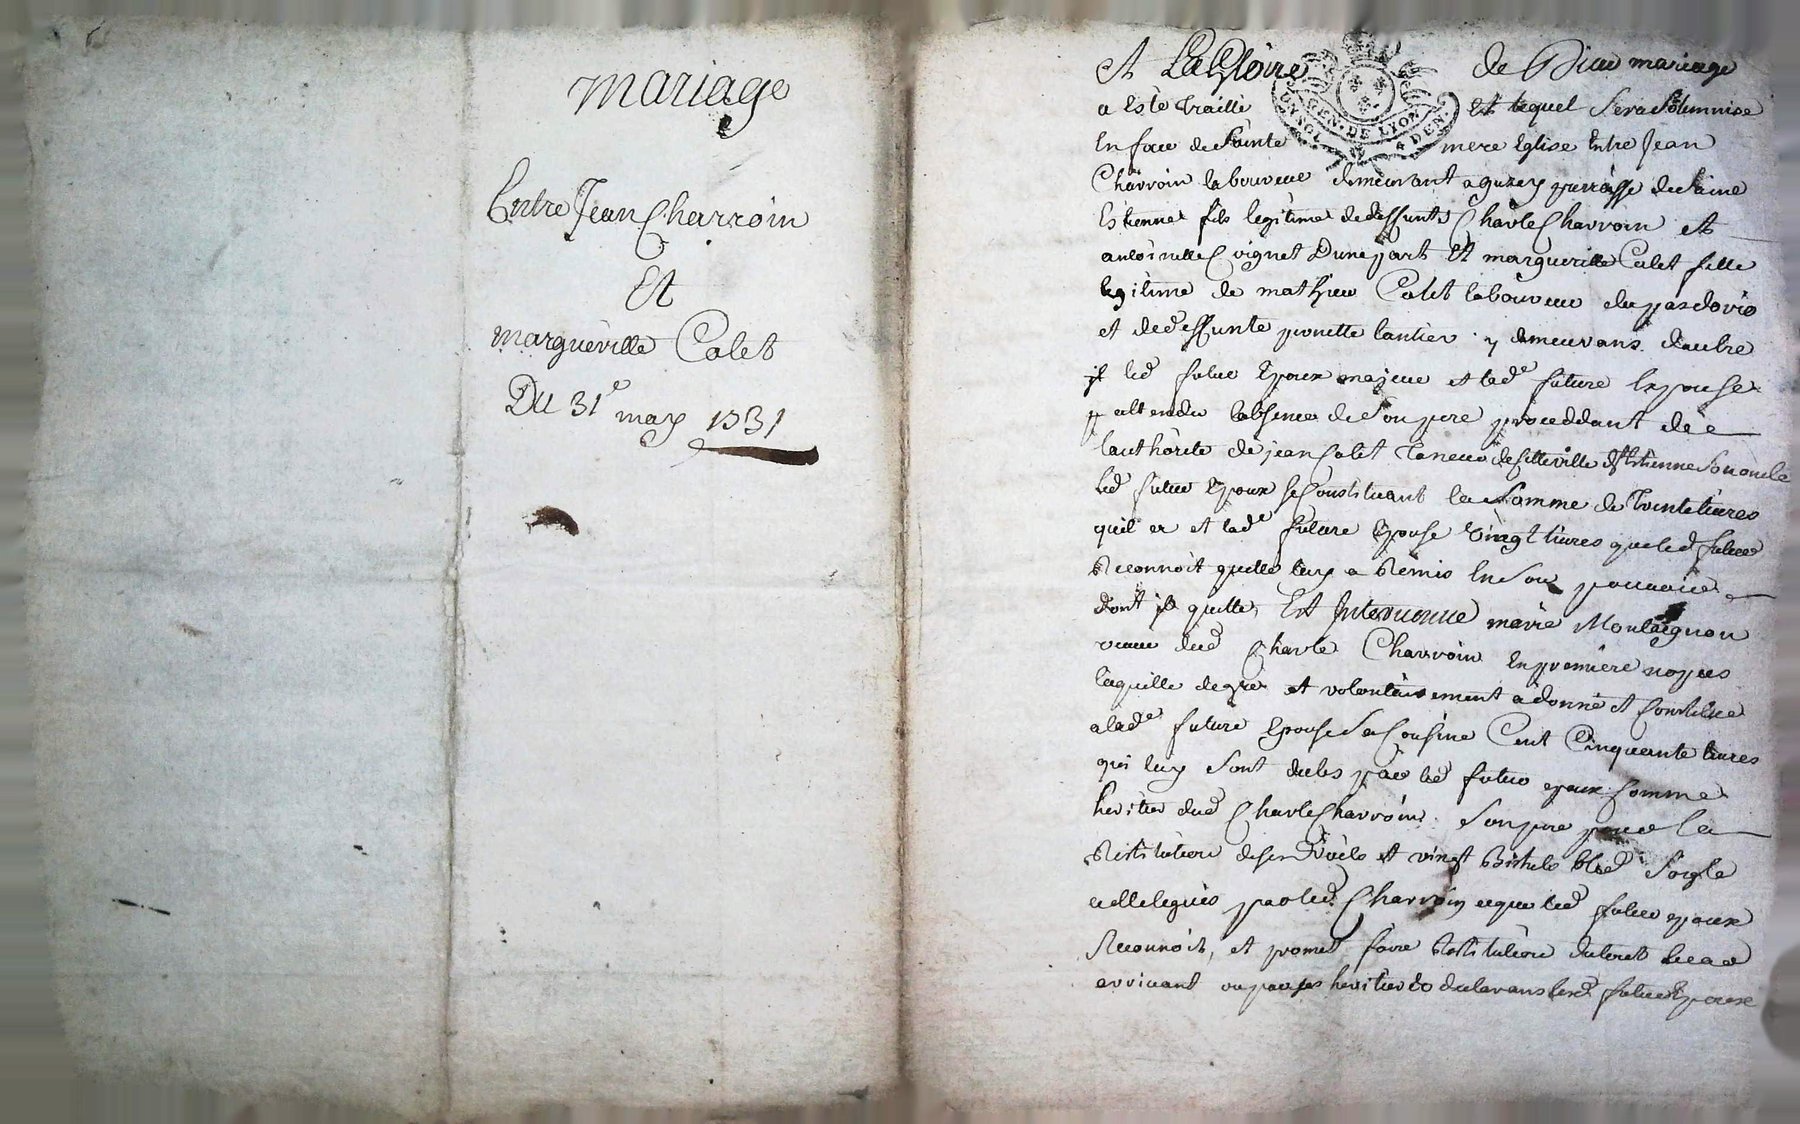 mariage
Entre Jean Charroin
Et
margueritte Colet
Du 31e may 1731
A La Gloire de Dieu mariage
a Esté traitté Et lequel sera solemnise
En face de Sainte mere Eglise Entre Jean
Charroin laboureur demeurant a
Estienne fils legitime de deffunts Charle Charroin et
antoinette vignet Dune part Et margueritte Colet fille
legitime de mathieu Colet laboureur
et de deffunte lantier y demeurans dautre
led futur Epoux majeur et lade future Expouse
attendu labsence de son pere proceddant de
lauthorite de jean Colet de cette ville St Estienne son oncle
led futur Epoux se Constituant la somme de trente livres
quil et lade future Epouse vingt livres que led futur
Reconnoit quelle luy a Remis En son pouvoir
dont il quitte, Est Intervenue marie Montaignon
veuve dud Charle Charroin En premiere nopces
laquelle de gre et volontairement a donné et Constitue
a lade future Epouse sa Cousine Cent Cinquante livres
qui luy sont dubs par led futur epoux comme
heritier dud Charle Charroin son pere pour la
Restitution de ses droits et vingt Bichets bled soigle
a elle legués par led Charroin ce que led futur epoux
Reconnoit, et promet faire Restitution du tout le cas
arrivant ou par ses heritiers declarans lesd futurs Epoux
GEN. DE LYON